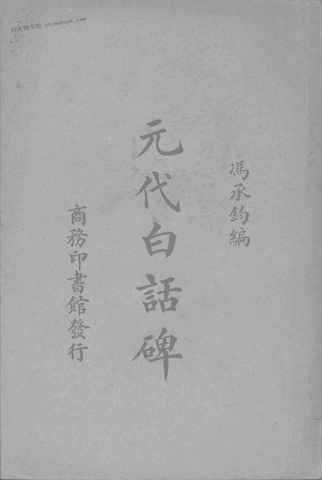 馮承鈞編
元代白話碑
商務印書館發行